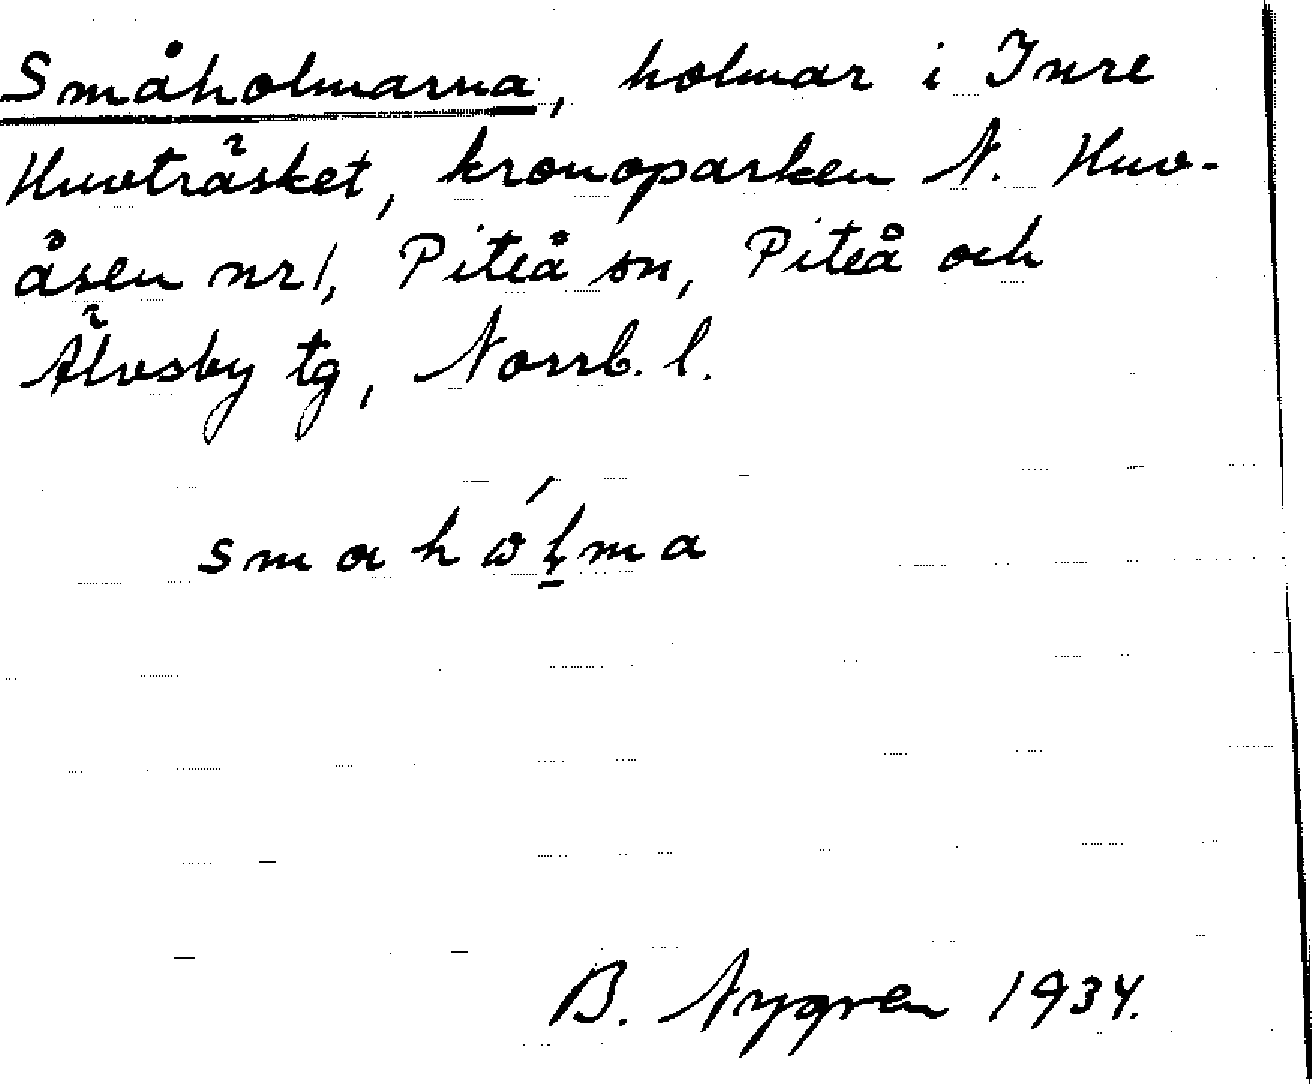 Småholmarna, holmar i Inre
Huvträsket, kronoparken N. Huv-
åsen nr 1, Piteå sn, Piteå och
Älvsby tg, Norrb. l.
B. Nygren 1934.